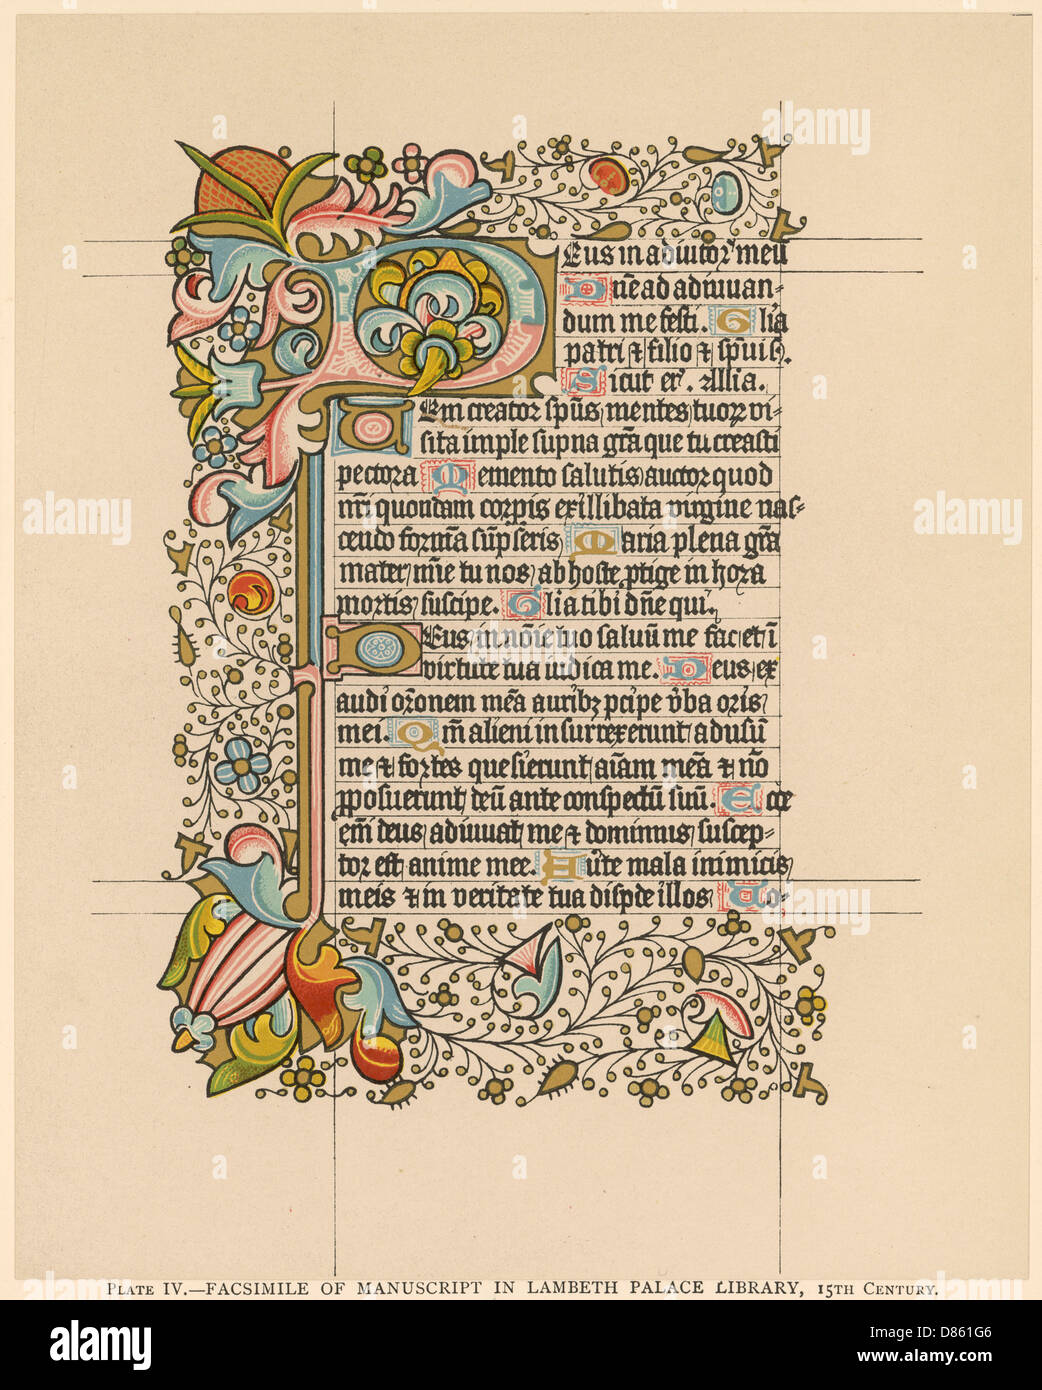 Deus in adiutor' meū
Dñe ad adiuuan-
dum me festi. Glīa
patri ⁊ filio ⁊ sp̄ui s.
Sicut er'. Allīa.
Uem creator spūs mentes tuoꝝ vi-
sita imple sup̄na grā que tu creasti
pectora Memento salutis auctor quod
nr̄i quondam corꝑis ex illibata virgine nas-
cendo formā sūpseris Maria plena grā
mater mīe tu nos ab hoste ꝓtige in hora
mortis suscipe. Glīa tibi dñe qui.
Deus in nōie tuo saluū me fac et ī
virtute tua iudica me. Deus ex
audi orōnem meā auribꝫ ꝑcipe v̄ba oris
mei. Qm̄ alieni insurrexerunt adusū
me ⁊ fortes quesierunt aīam meā ⁊ nō
ꝓposuerunt deū ante conspectū suū. Ecce
em̄ deus adiuuat me ⁊ dominus suscep-
tor est anime mee. Aūte mala inimicis
meis ⁊ in veritate tua disꝑde illos Uo-
Plate IV.—FACSIMILE OF MANUSCRIPT IN LAMBETH PALACE LIBRARY, 15TH Century.
alamy
Image ID: D861G6
www.alamy.com